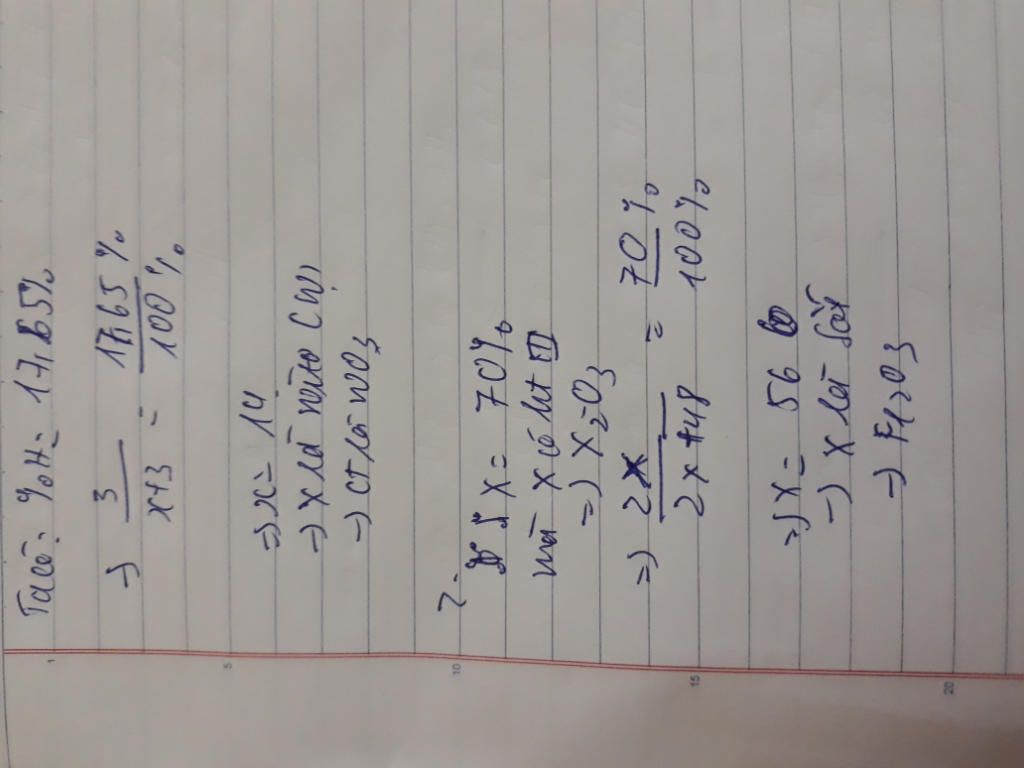 Ta có: %H = 17,65%
=> 3/x+3 = 17,65%/100%
=> x = 14
=> x là nitơ (N)
=> CT là NO3
2.
% X = 70%
mà X có ht III
=> X2O3
=> 2X/2X+48 = 70%/100%
=> X = 56
=> X là sắt
=> Fe2O3
1
5
10
15
20